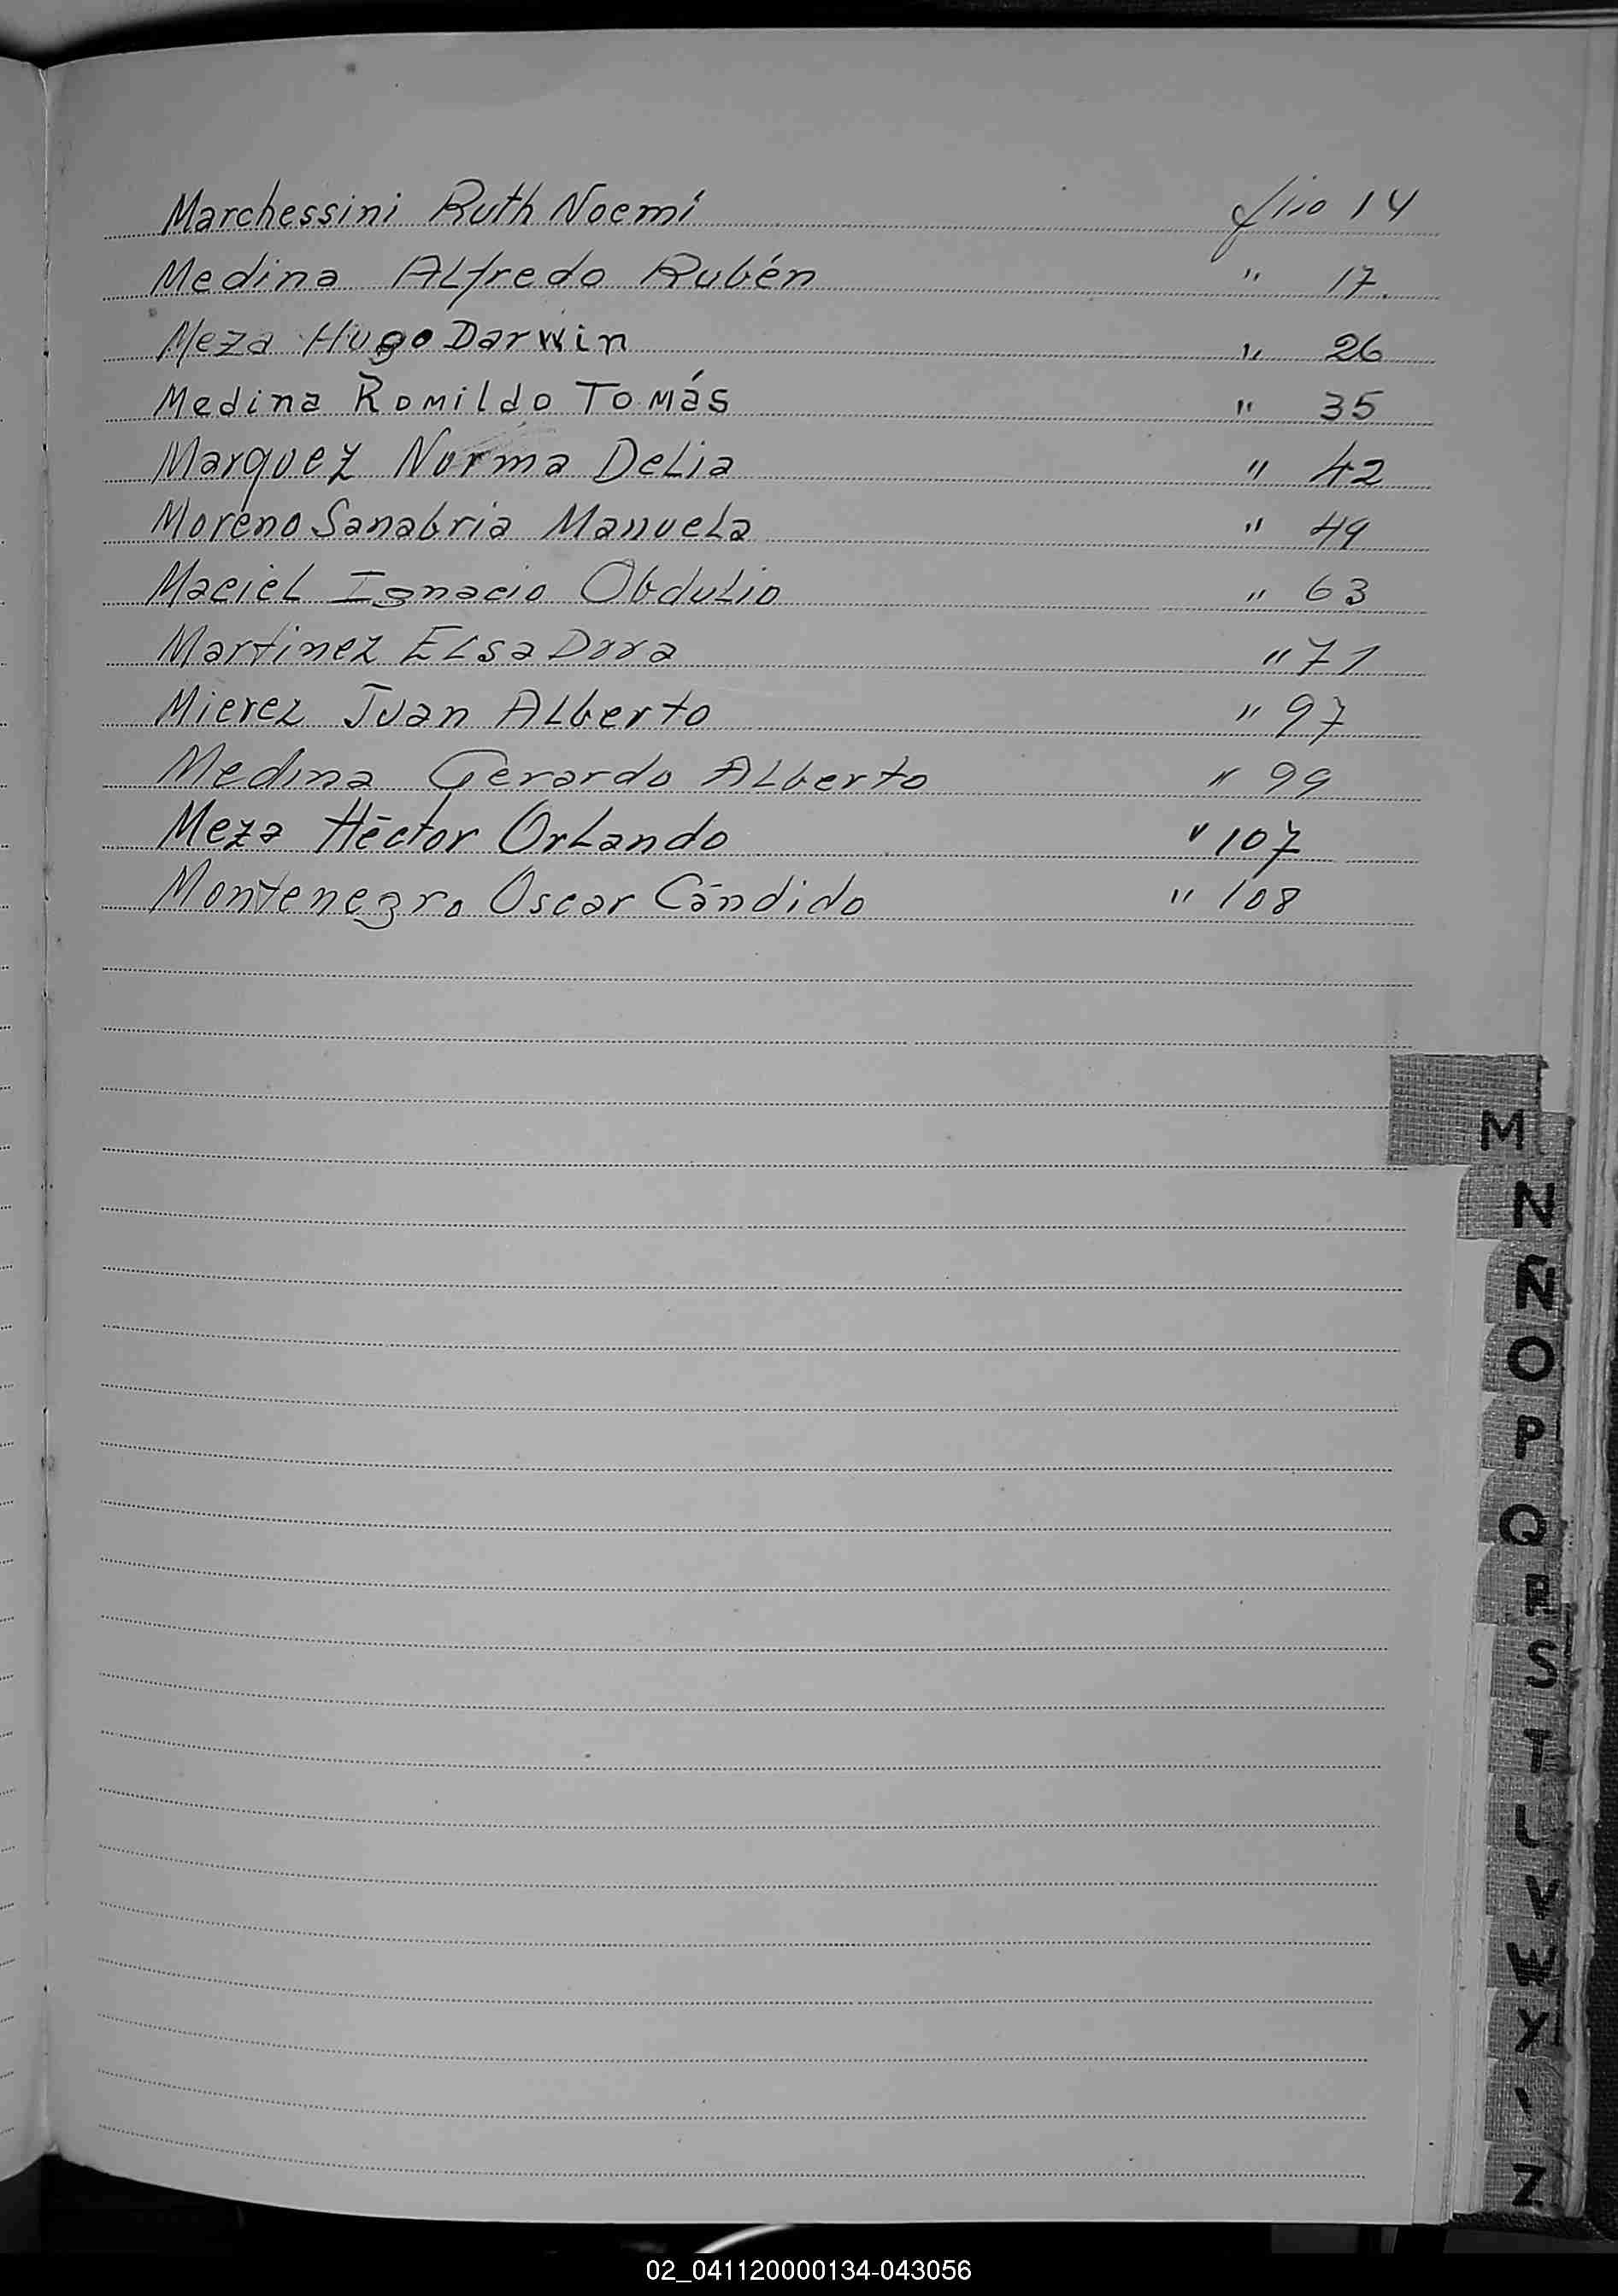 Marchessini Ruth Noemí flio 14
Medina Alfredo Rubén " 17.
Meza Hugo Darwin " 26
Medina Romildo Tomás " 35
Marquez Norma Delia " 42
Moreno Sanabria Manuela " 49
Maciel Ignacio Obdulio " 63
Martinez Elsa Dora " 71
Mierez Juan Alberto " 97
Medina Gerardo Alberto " 99
Meza Héctor Orlando " 107
Montenegro Oscar Cándido " 108
M
N
Ñ
O
P
Q
R
S
T
V
W
Z
02_041120000134-043056